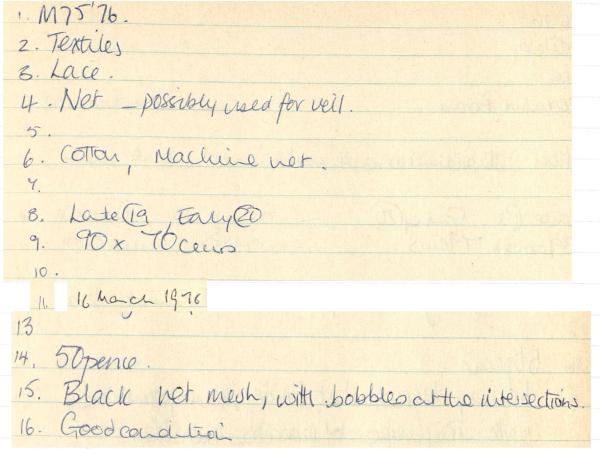 1. M75'76.
2. Textiles
3. Lace.
4. Net – possibly used for veil.
5.
6. Cotton, Machine net.
7.
8. Late 19, Early 20
9. 90 x 70 cems
10.
11. 16 March 1976
13
14. 50 pence.
15. Black net mesh, with bobbles at the intersections.
16. Good condition